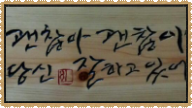 괜찮아 괜찮아
당신 잘하고 있어